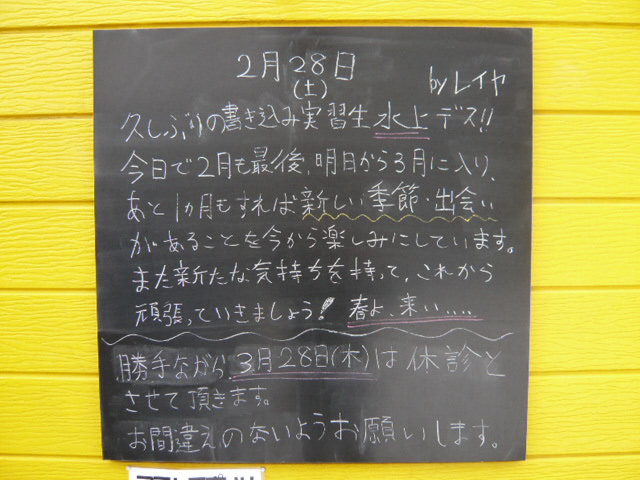 2月28日
(土)
byレイヤ
久しぶりの書き込み実習生水上デス!!
今日で2月も最後、明日から3月に入り、
あと1ヵ月もすれば新しい季節・出会い
があることを今から楽しみにしています。
また新たな気持ちを持って、これから
頑張っていきましょう! 春よ、来い....
勝手ながら3月28日(木)は休診と
させて頂きます。
お間違えのないようお願いします。